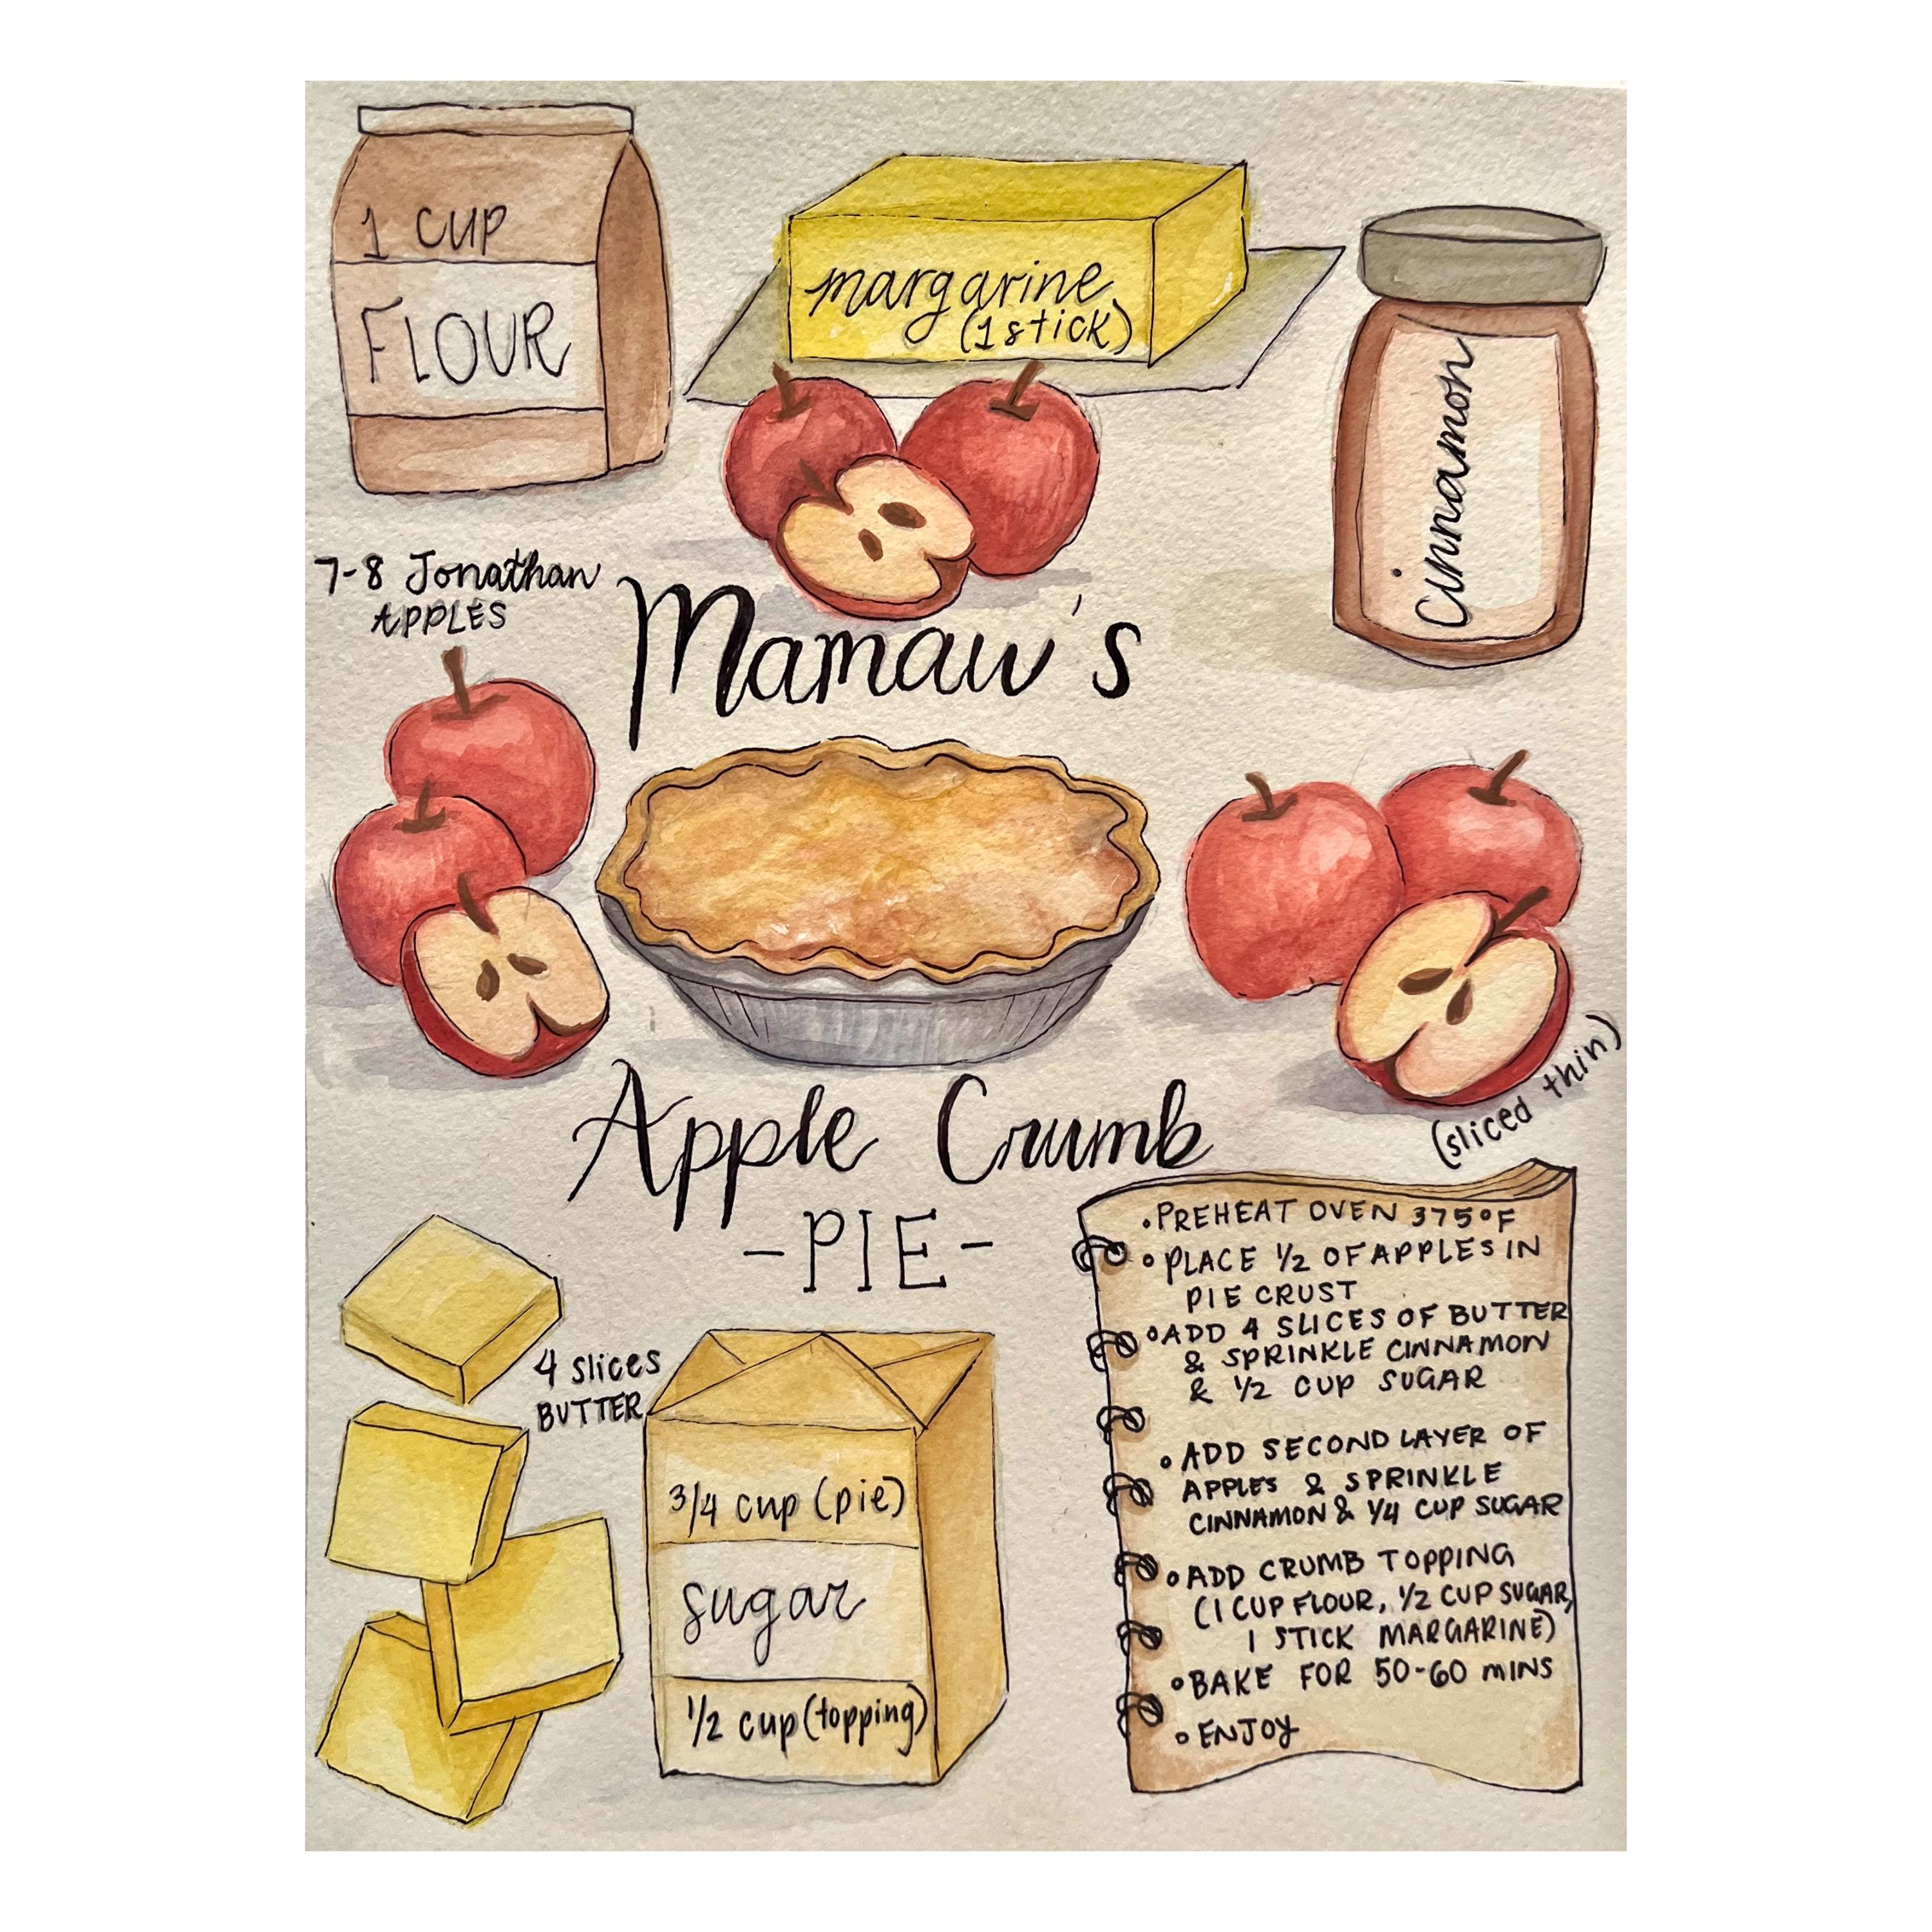 1 CUP
FLOUR
margarine
(1 stick)
Cinnamon
7-8 Jonathan
APPLES
Mamaw's
(sliced thin)
Apple Crumb
-PIE-
4 slices
BUTTER
3/4 cup (pie)
sugar
1/2 cup (topping)
• PREHEAT OVEN 375°F
• PLACE 1/2 OF APPLES IN
PIE CRUST
• ADD 4 SLICES OF BUTTER
& SPRINKLE CINNAMON
& 1/2 CUP SUGAR
• ADD SECOND LAYER OF
APPLES & SPRINKLE
CINNAMON & 1/4 CUP SUGAR
• ADD CRUMB TOPPING
(1 CUP FLOUR, 1/2 CUP SUGAR,
1 STICK MARGARINE)
• BAKE FOR 50-60 MINS
• ENJOY